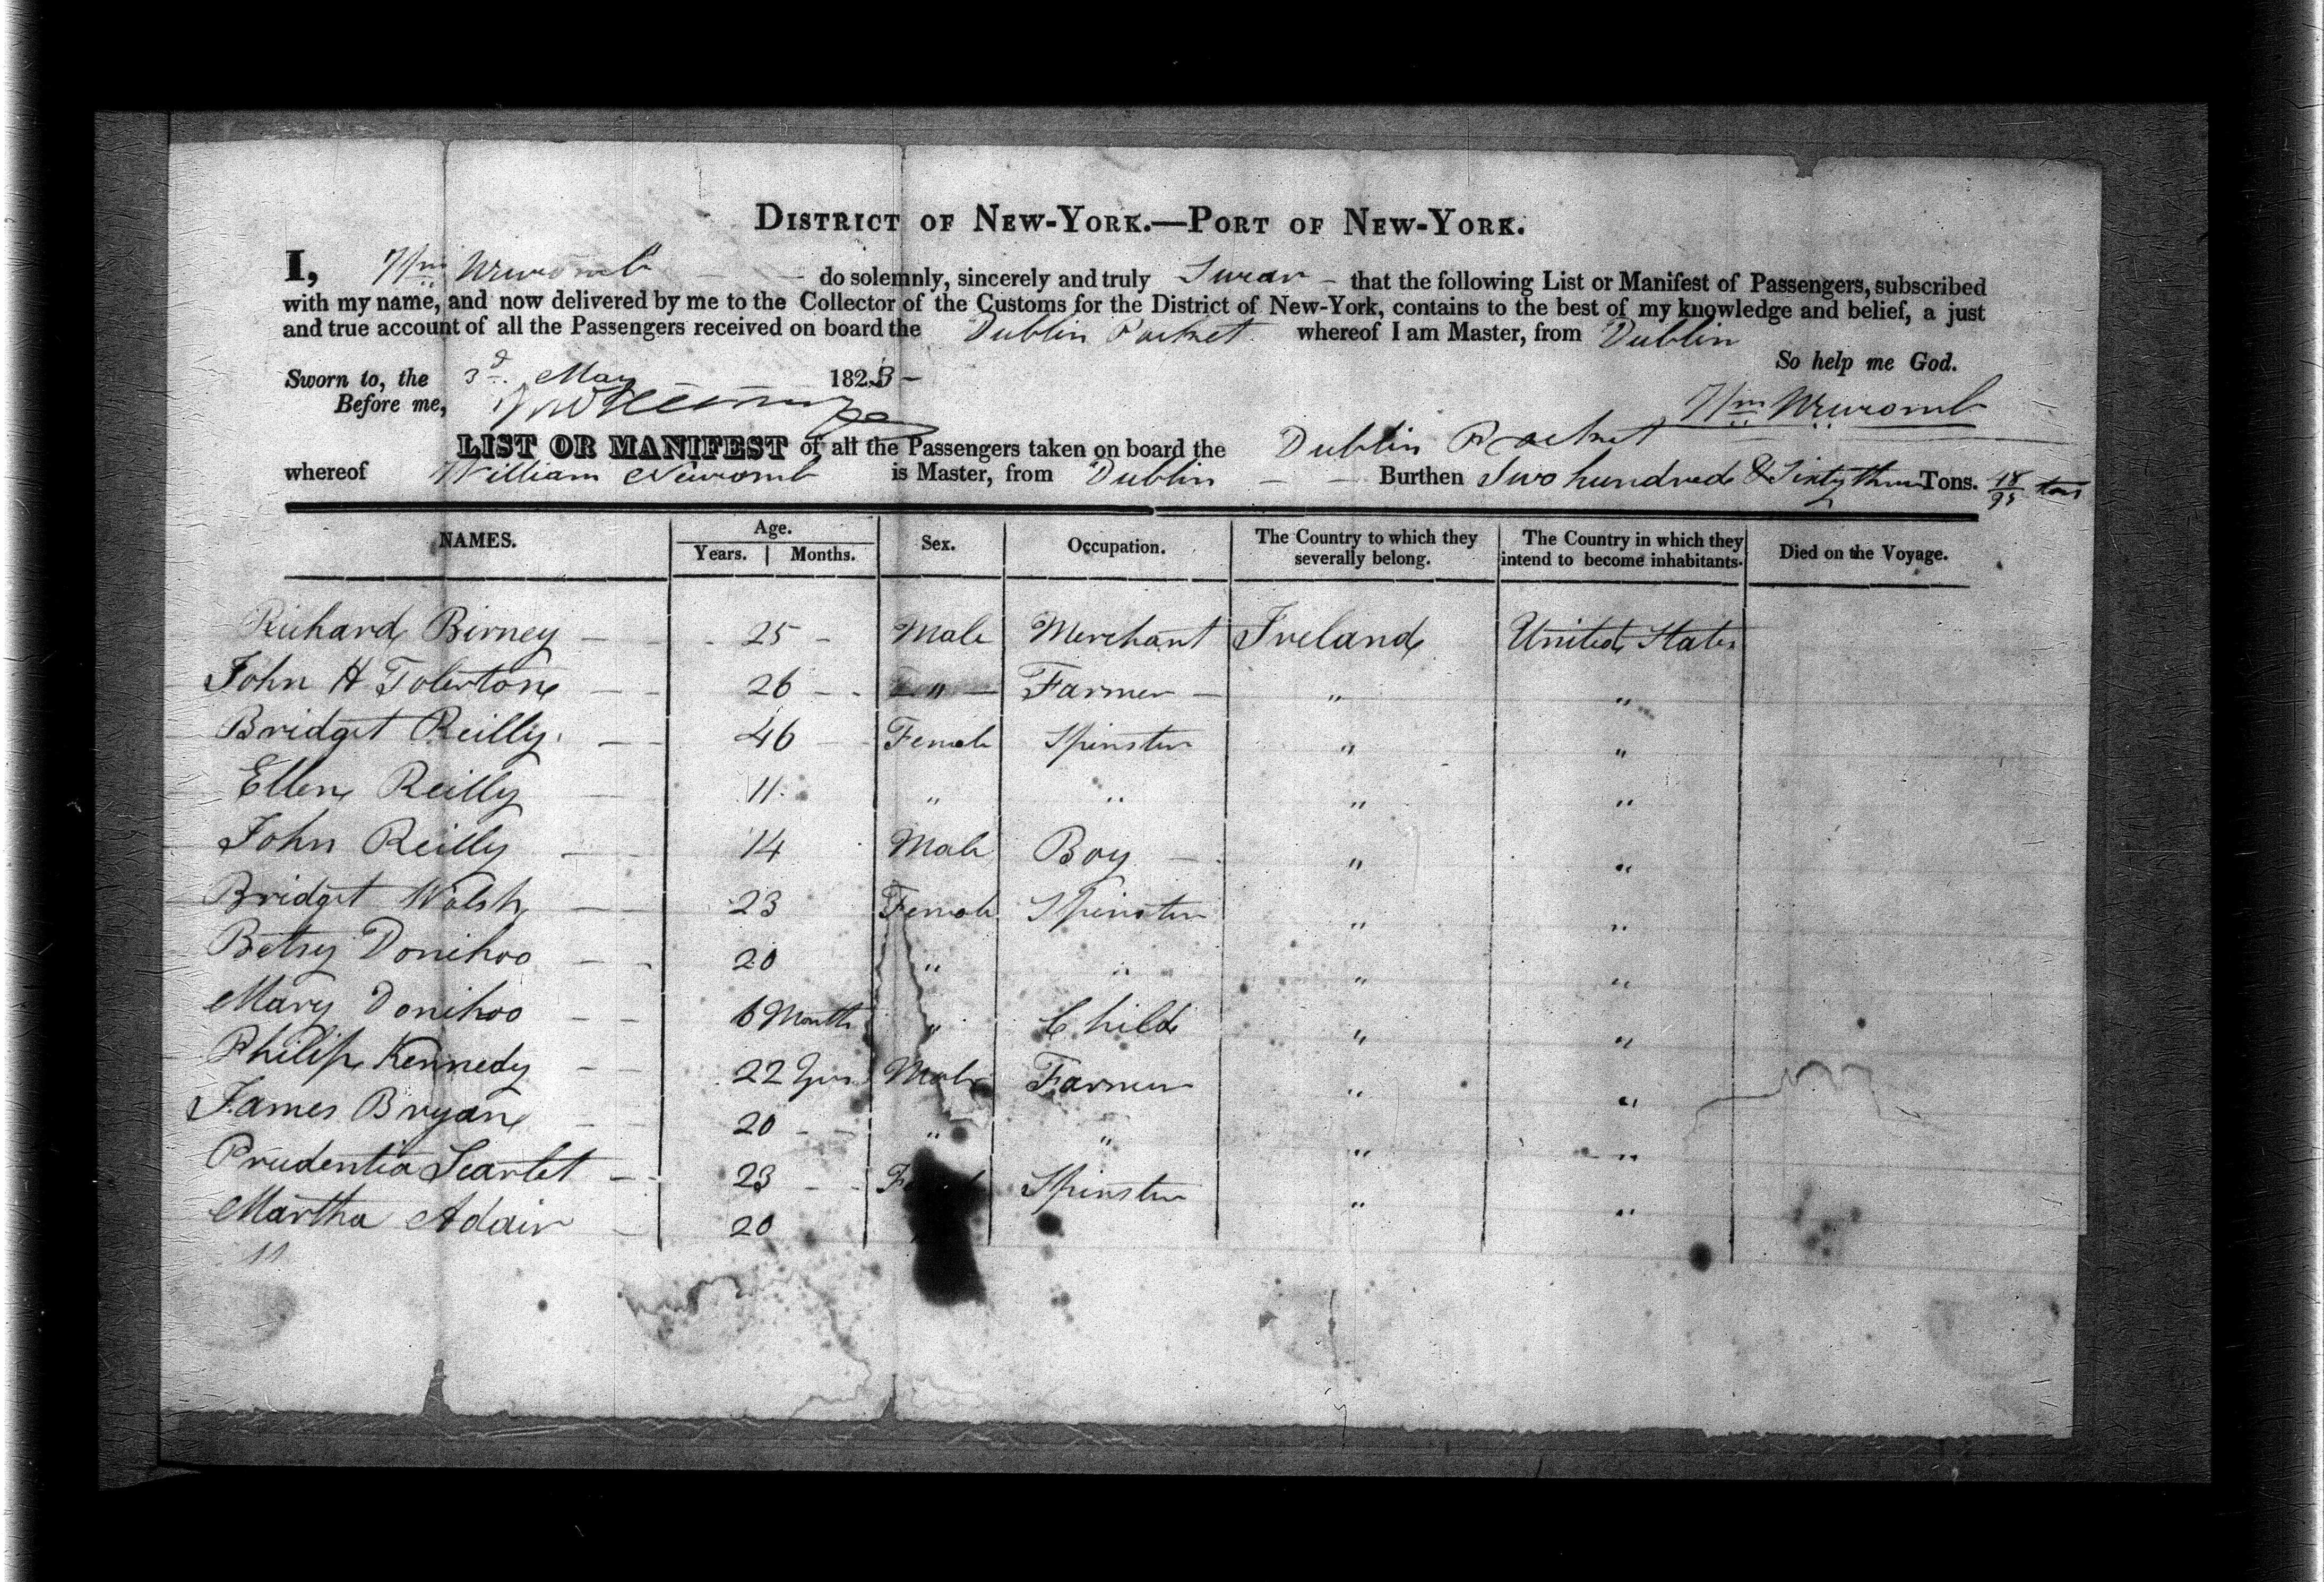 DISTRICT OF NEW-YORK.—PORT OF NEW-YORK.
I, Wm Newcomb — — do solemnly, sincerely and truly Swear – that the following List or Manifest of Passengers, subscribed
with my name, and now delivered by me to the Collector of the Customs for the District of New-York, contains to the best of my knowledge and belief, a just
and true account of all the Passengers received on board the Dublin Packet whereof I am Master, from Dublin
So help me God.
Sworn to, the 3d. May 1823 –
Before me,
Wm Newcomb
LIST OR MANIFEST of all the Passengers taken on board the Dublin Packet
whereof William Newcomb is Master, from Dublin – – Burthen Two hundred & Sixty three Tons. 48/95 tons
NAMES. Age. Years. Months. Sex. Occupation. The Country to which they severally belong. The Country in which they intend to become inhabitants. Died on the Voyage.
Richard Birney – – 25 – Male Merchant Ireland United States
John H Tolertone – – 26 – – " Farmer – " "
Bridget Reilly. – – 46 – – Female Spinster " "
Ellen Reilly – 11 " " " "
John Reilly – – 14 Male Boy – " "
Bridget Walsh – – 23 Female Spinster " "
Betsy Donihoo – – 20 " " " "
Mary Donihoo – – 6 Months " Child " "
Philip Kennedy – – 22 Yrs Male Farmer " "
James Bryan – – 20 – – " " " "
Prudentia Scarlet – – 23 – – Spinster " "
Martha Adair – 20